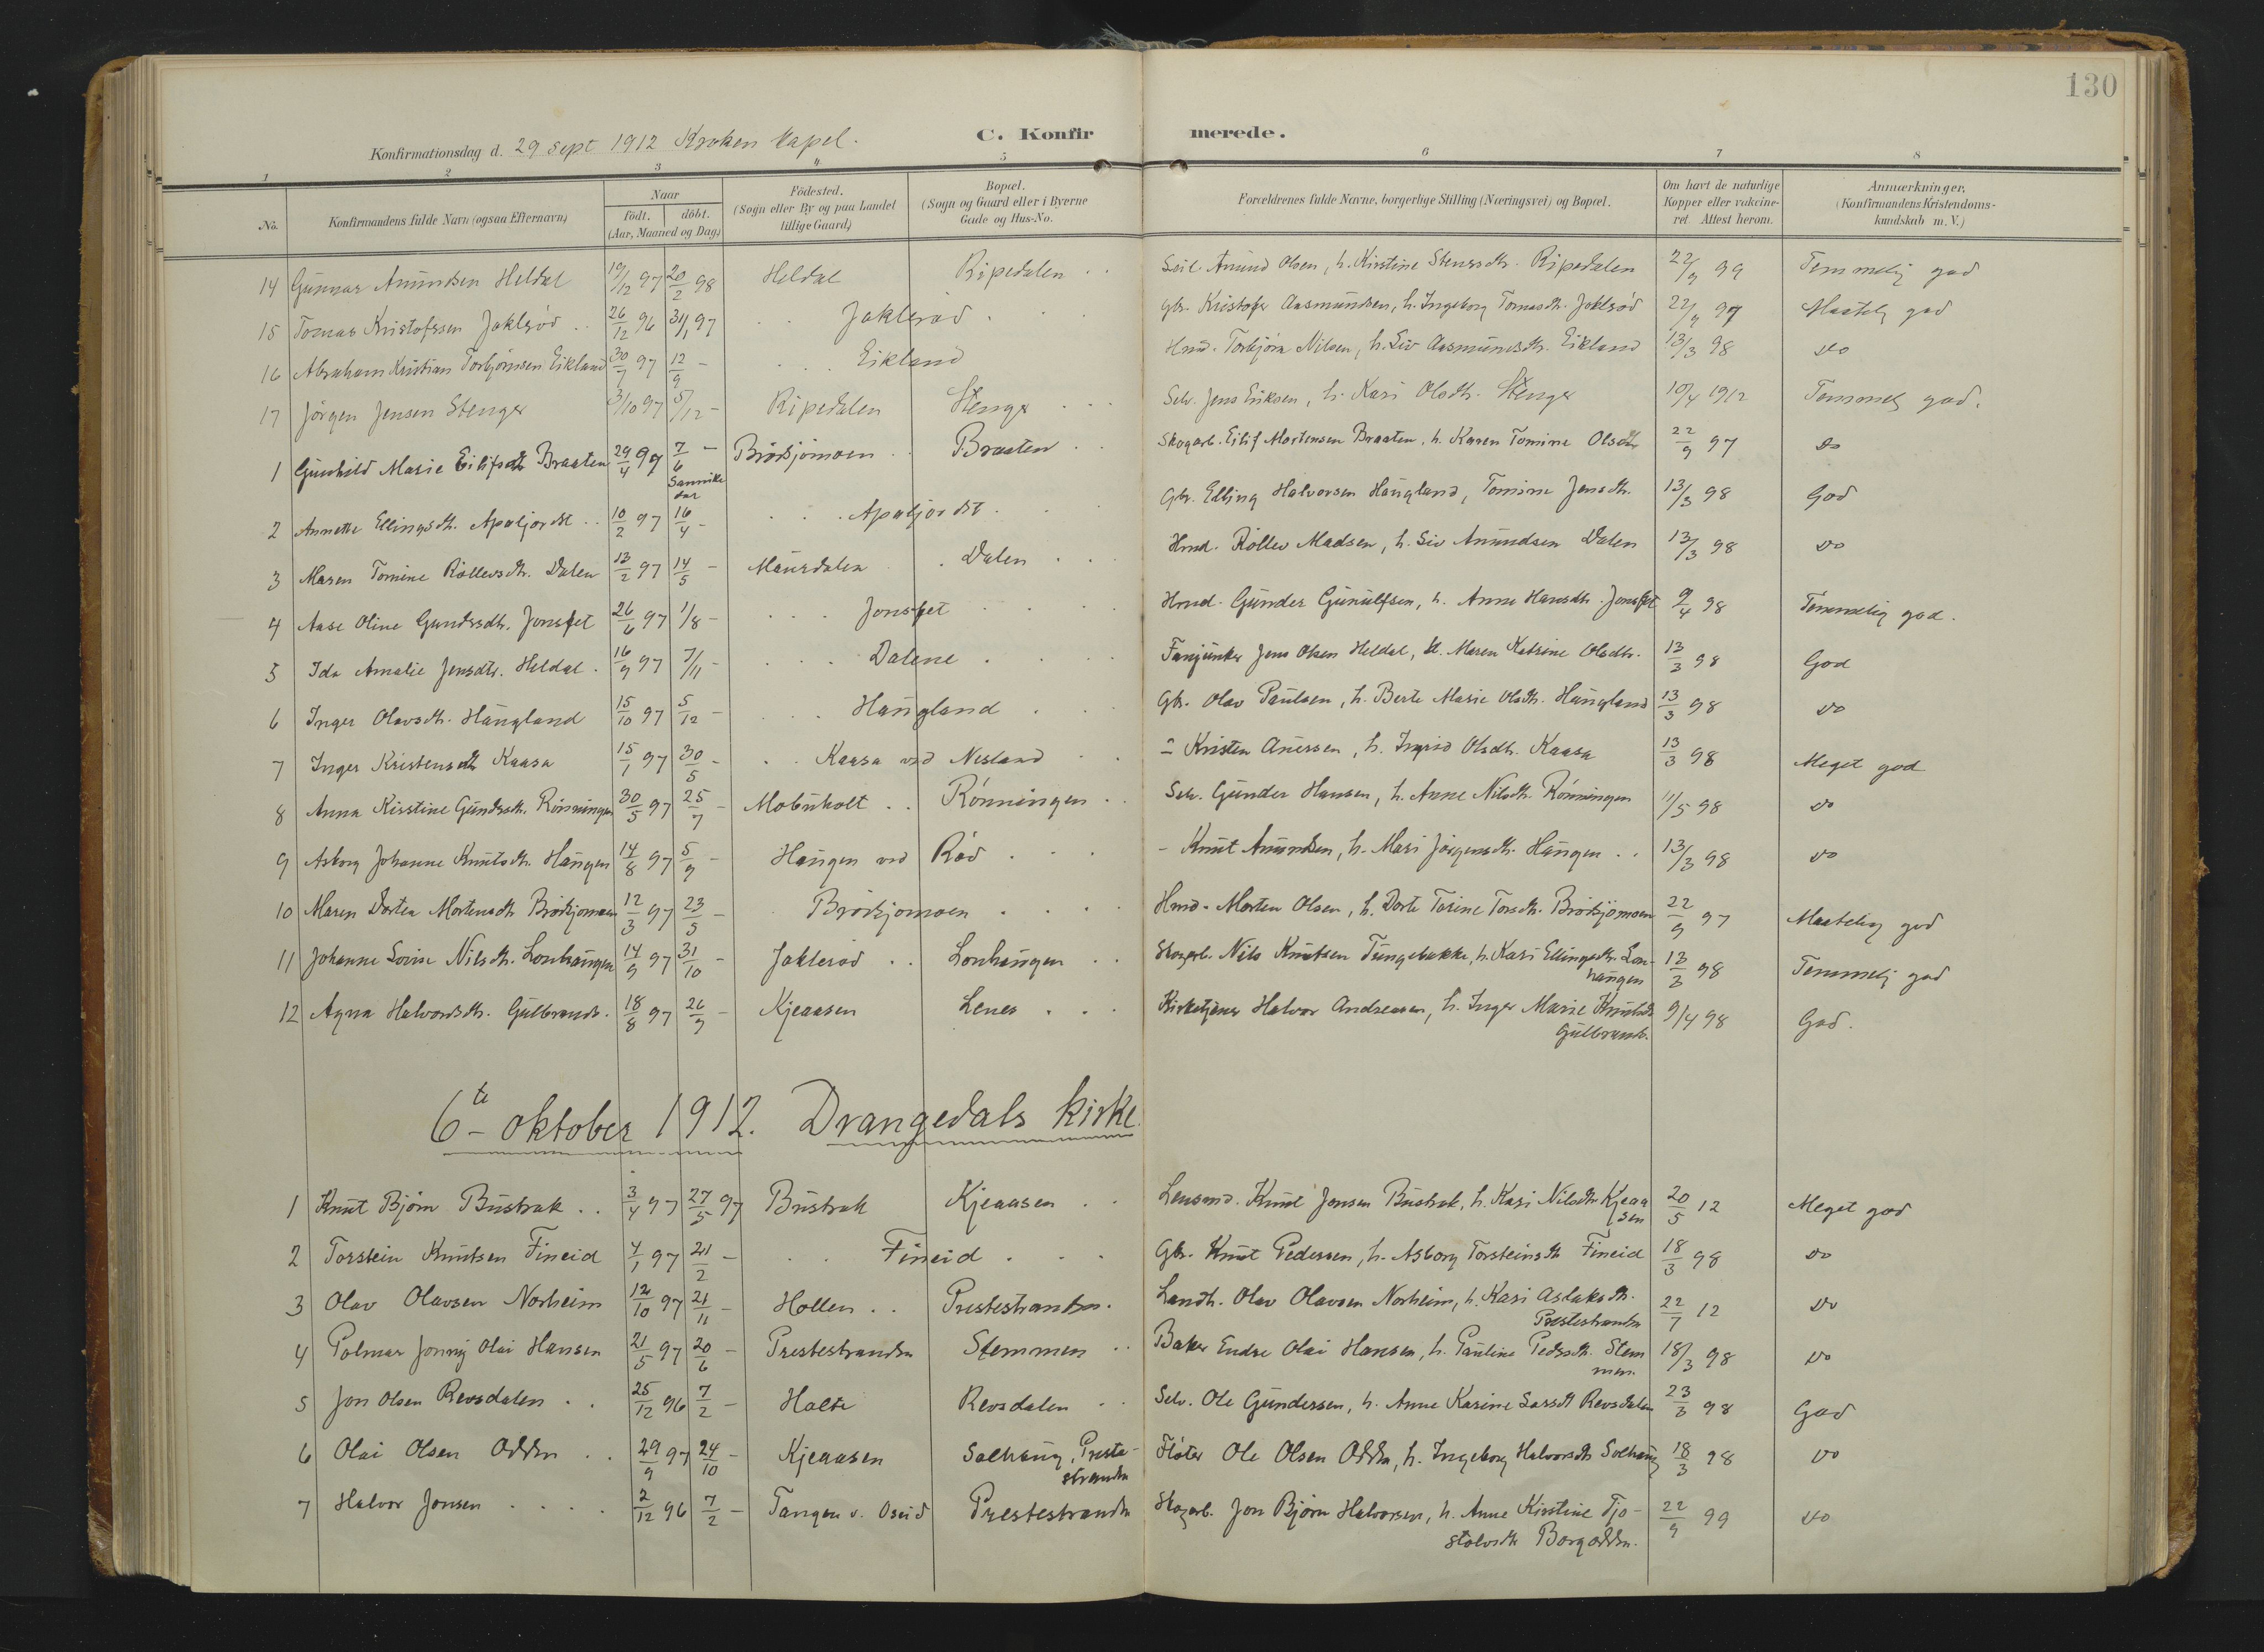 130
C. Konfirmerede.
Konfirmationsdag d. 29 sept 1912 Kroken kapel.
1 2 3 4 5 6 7 8
No. Konfirmandens fulde Navn (ogsaa Efternavn) Naar født. døbt. (Aar, Maaned og Dag) Fødested. (Sogn eller By og paa Landet tillige Gaard) Bopæl. (Sogn og Gaard eller i Byerne Gade og Hus-No. Forældrenes fulde Navne, borgerlige Stilling (Næringsvei) og Bopæl. Om havt de naturlige Kopper eller vakcineret. Attest herom. Anmærkninger. (Konfirmandens Kristendomskundskab m. V.)
14 Gunnar Anundsen Heldal 19/12 97 20/2 98 Heldal Ripedalen Anund Olsen, h. Kirstine Ripedalen 22/9 99 Temmelig god
15 Tomas Kristofssen Jaklerød 26/12 96 31/1 97 Jaklerød Gbr. Kristofer Aasmundsen, h. Ingeborg Tomasdh. Jaklerød 22/9 97 Maatelig god
16 Abraham Kristian Torbjørnsen Eikland 30/7 97 12/9 - Eikland Hmd. Torbjørn Nilsen, h. Siv Aasmundsdh. Eikland 13/3 98 do
17 Jørgen Jensen Stenger 3/10 97 5/12 - Ripedalen Stenger Selv. Jens Eriksen, h. Kari Olsdh. Stenger 10/4 1912 Temmelig god.
1 Gunhild Marie Eilifsdh Braaten 29/4 97 7/6 - Sannikedal Brødsjømoen Braaten Skogarb. Eilif Mortensen Braaten, h. Karen Tomine Olsdh 22/9 97 do
2 Annette Ellingsdh. Apaljordet 10/2 97 16/4 - Apaljordet Gbr. Elling Halvorsen Haugland, Tomine Jensdh. 13/3 98 God
3 Maren Tomine Rollevsdh. Dalen 13/2 97 14/5 - Maurdalen Dalen Hmd. Rollev Madsen, h. Siv Anundsen Dalen 13/3 98 do
4 Aase Oline Gundersdh. Jonsfet 26/6 97 1/8 - Jonsfet Hmd. Gunder Gunulfsen, h. Anne Hansdh. Jonsfet 9/4 98 Temmelig god.
5 Ida Amalie Jensdh. Heldal 16/9 97 7/11 - Dalene Fanjunker Jens Olsen Heldal, h. Maren Katrine Olsdh. 13/3 98 God
6 Inger Olavsdh. Haugland 15/10 97 5/12 - Haugland Gbr. Olav Paulsen, h. Berte Marie Olsdh. Haugland 13/3 98 do
7 Inger Kristensdh Kaasa 15/1 97 30/5 - Kaasa ved Nesland - Kristen h. Ingrid Olsdh. Kaasa 13/3 98 Meget god
8 Anna Kirstine Gundersdh. Rønningen 30/5 97 25/7 - Mobuholt Rønningen Selv. Gunder Hansen, h. Anne Nilsdh. Rønningen 11/5 98 do
9 Asborg Johanne Knutsdh. Haugen 14/8 97 5/9 - Haugen ved Rød - Knut Anundsen, h. Mari Jørgensdh. Haugen 13/3 98 do
10 Maren Dortea Mortensdh Brødsjømoen 12/3 97 23/5 - Brødsjømoen Hmd. Morten Olsen, h. Dorte Torine Torsdh. Brødsjømoen 22/9 97 Maatelig god
11 Johanne Lovise Nilsdh. Lonhaugen 14/9 97 31/10 - Jaklerød Lonhaugen Skogarb. Nils Knutsen Tungebakke, h. Kari Ellingsdh. Lonhaugen 13/3 98 Temmelig god
12 Agna Halvorsdh. Gulbrands. 18/8 97 26/9 - Kjeaasen Lenes Kirketjener Halvor Andreasen, h. Inger Marie Knutsdh Gulbrands. 9/4 98 God.
6te oktober 1912. Drangedals kirke
1 Knut Bjørn Bustrak 3/4 97 27/5 97 Bustrak Kjeaasen Lensmd. Knut Jonsen Bustrak, h. Kari Nilsdh Kjeaasen 20/5 12 Meget god
2 Torstein Knutsen Fineid 4/1 97 21/2 - Fineid Gbr. Knut Pedersen, h. Asborg Torsteinsdh Fineid 18/3 98 do
3 Olav Olavsen Norheim 12/10 97 21/11 - Hollen Prestestranden Landh. Olav Olavsen Norheim, h. Kari Aslaksdh. Prestestranden 22/7 12 do
4 Polmar Jonny Olai Hansen 21/5 97 20/6 - Prestestranden Stemmen Baker Endre Olai Hansen, h. Pauline Pedersdh. Stemmen 18/3 98 do
5 Jon Olsen Revsdalen 25/12 96 7/2 - Holte Revsdalen Selv. Ole Gundersen, h. Anne Karine Larsdh Revsdalen 23/3 98 God
6 Olai Olsen Odden 29/9 97 24/10 - Kjeaasen Solhaug, Prestestranden Fløter Ole Olsen Odden, h. Ingeborg Halvorsdh Solhaug 18/3 98 do
7 Halvor Jonsen 2/12 96 7/2 - Tangen v. Oseid Prestestranden Skogarb. Jon Bjørn Halvorsen, h. Anne Kirstine Tjostolvsdh Borgodden. 22/9 99 do